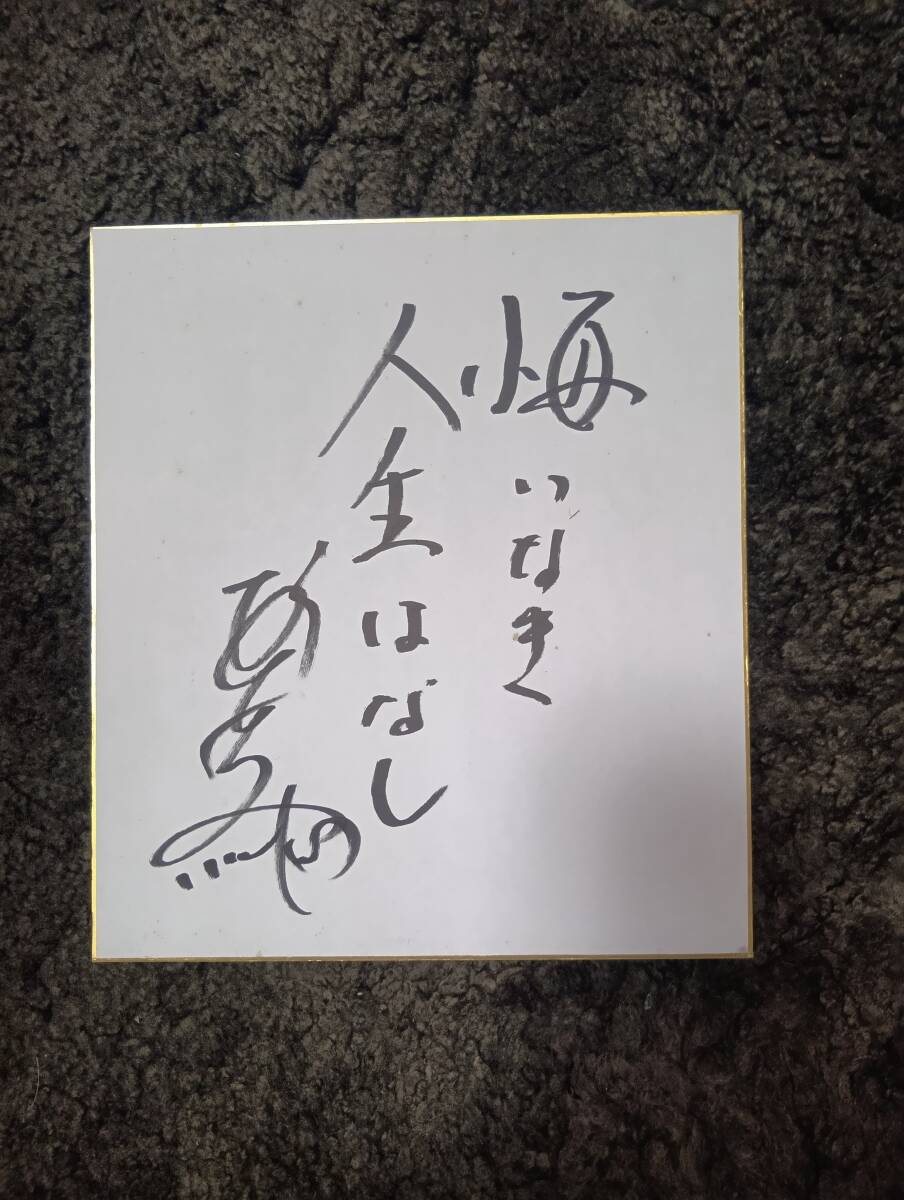 悔いなき
人生はなし